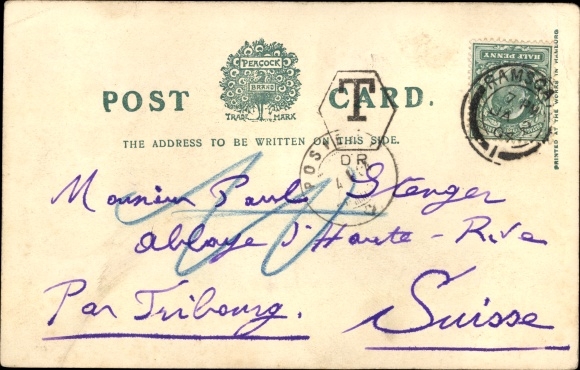 HALF PENNY
PEACOCK
BRAND
TRADE MARK
POST CARD.
T
THE ADDRESS TO BE WRITTEN ON THIS SIDE.
PRINTED AT THE WORKS IN HAMBURG
Monsieur Paul Stenger
abbaye d'Haute-Rive
Par Fribourg.
Suisse